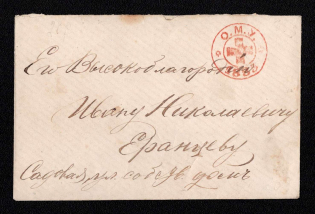 О.М.У.
Его Высокоблагородію
Ивану Николаевичу
Еранцеву
Садовая, ул. собств. домъ